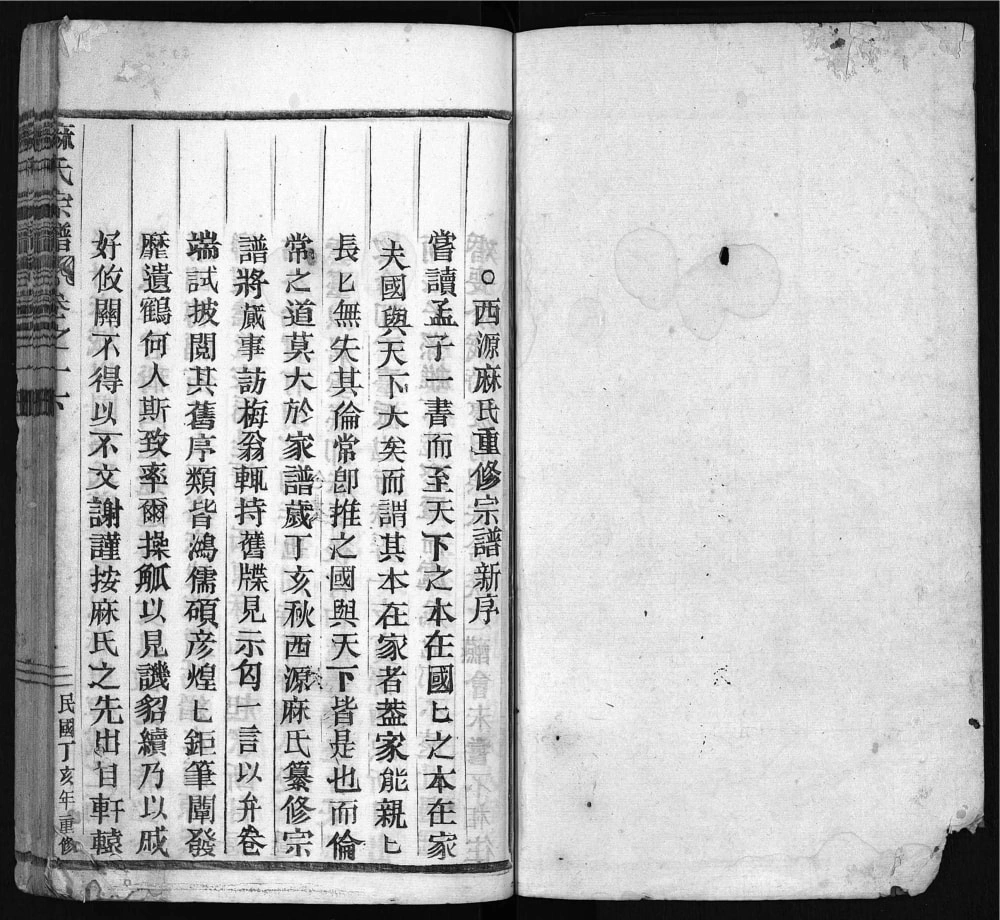 ○西源麻氏重修宗譜新序
嘗讀孟子一書而至天下之本在國匕之本在家
夫國與天下大矣而謂其本在家者葢家能親匕
長匕無失其倫常卽推之國與天下皆是也而倫
常之道莫大於家譜歲丁亥秋西源麻氏纂修宗
譜將蕆事訪梅翁輒持舊牒見示匃一言以弁卷
端試披閲其舊序類皆鴻儒碩彦煌匕鉅筆闡發
靡遺鶴何人斯致率爾操觚以見譏貂續乃以戚
好攸關不得以不文謝謹按麻氏之先出自軒轅
麻氏宗譜 卷之一下
民國丁亥年重修